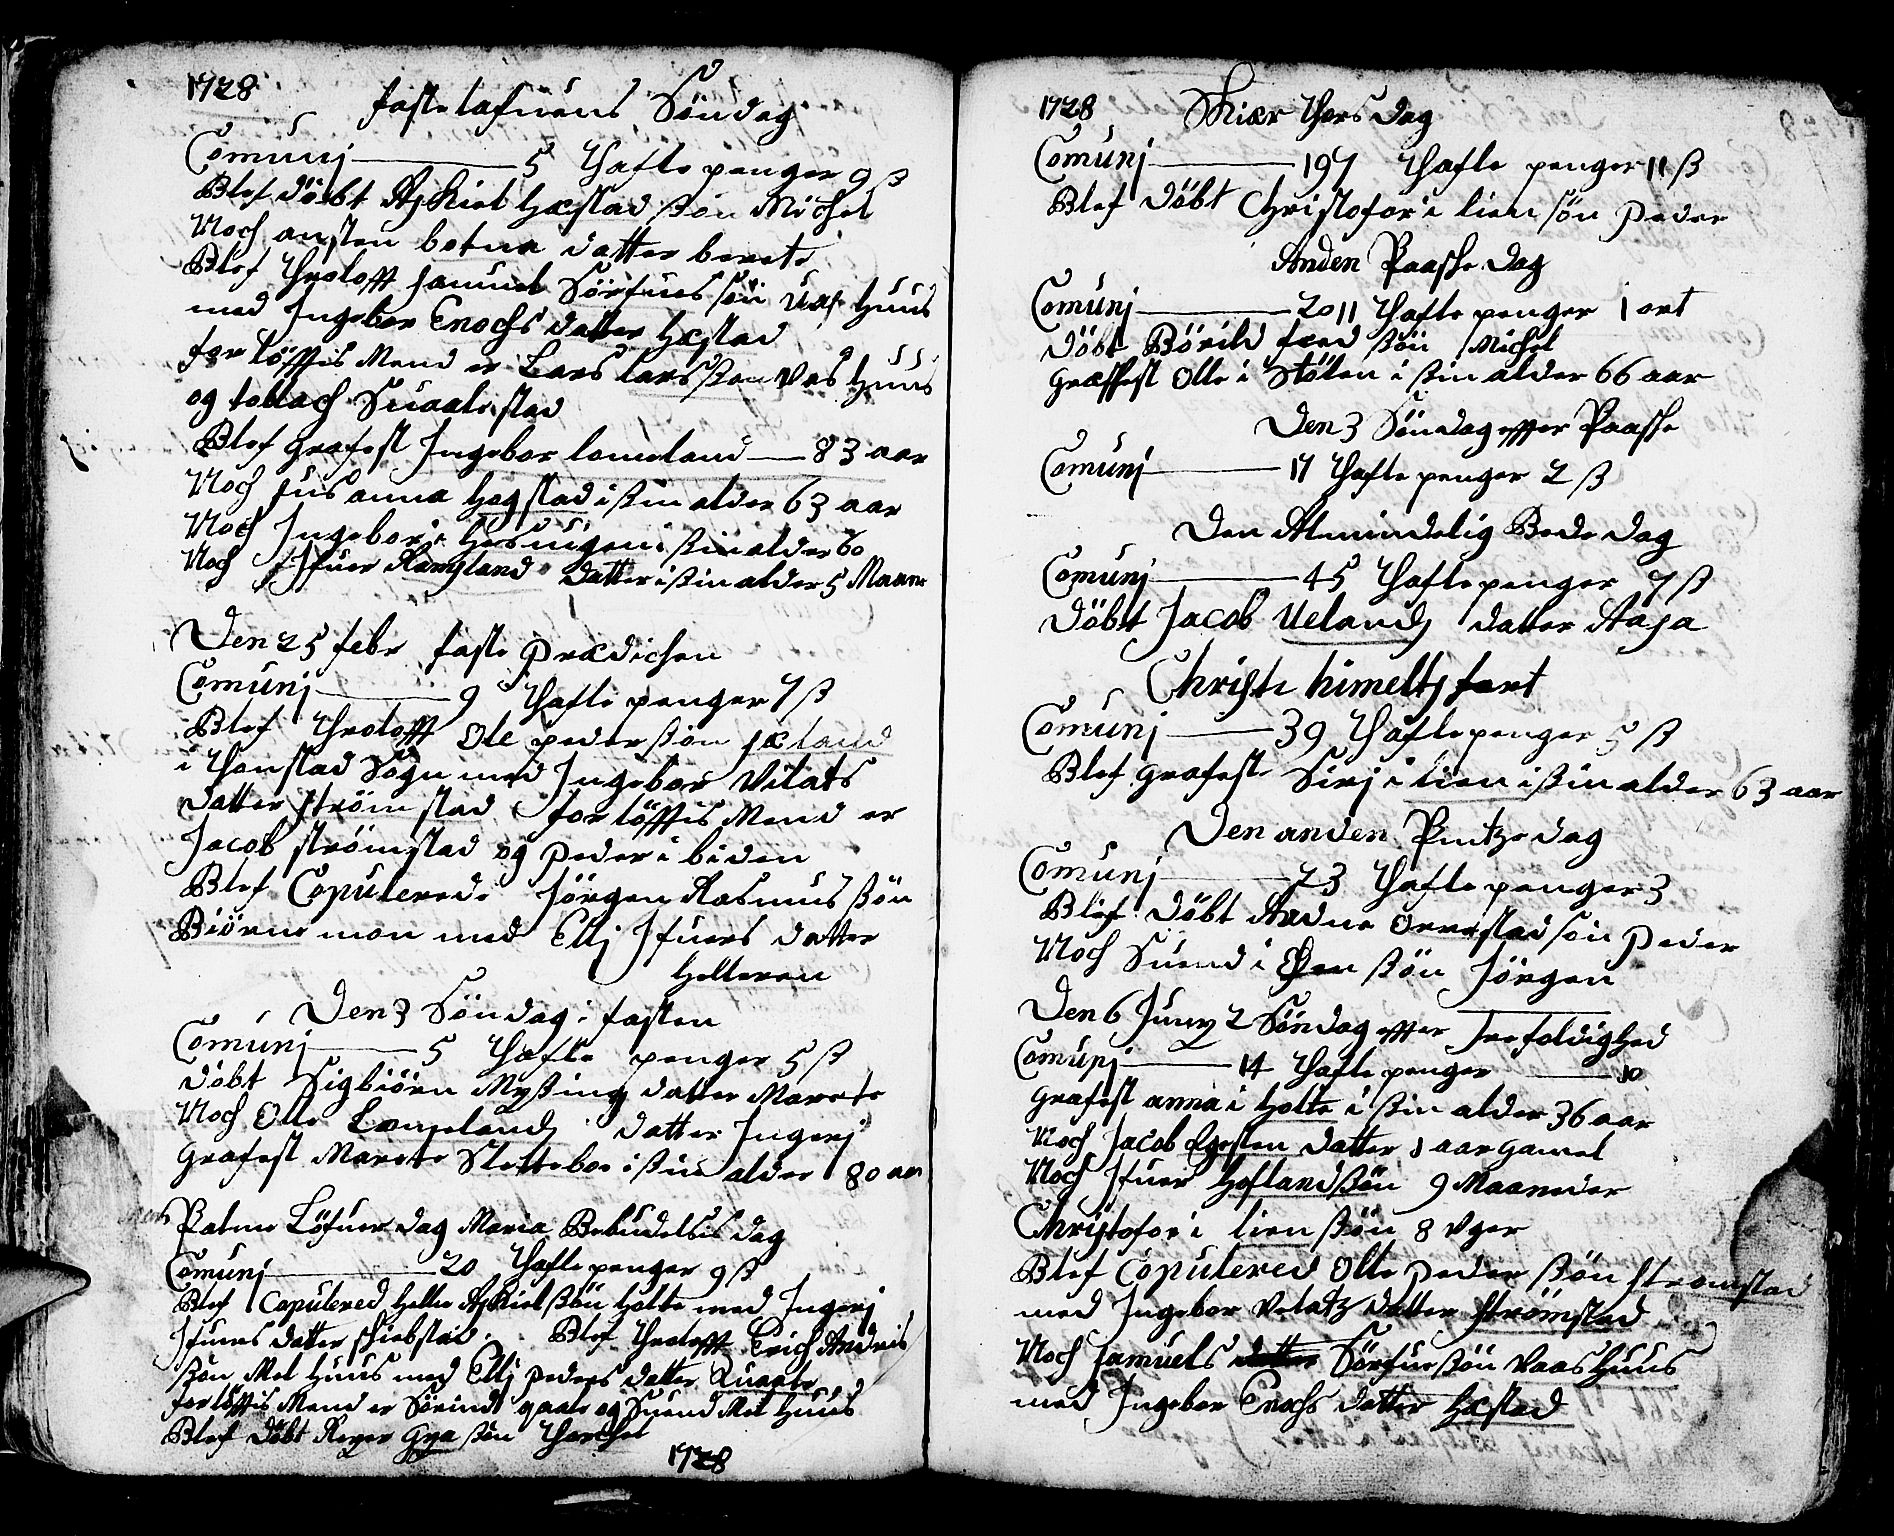 1728
fastelafnens Söndag
Comunj — 5 Tafle penger 9 ß
Blef döbt Askiel Hæstad ßön Michel
Noch ansten botna datter berete
Blef Trolofft Samuel Sörfuens sön Uas Huus
med Ingebor Enochs datter Hæstad
forlöfftis Mend er Lars larsßøn Vas Huus
og tollach Suaalestad
Blef grafest Ingebor lomeland — 83 aar
Noch Susanna Hegstad i ßin alder 63 aar
Noch Ingebor i i ßin alder 60
Noch Ifuer Ramsland datter i ßin alder 5 Maane
Den 25 febr faste Prædichen
Comunj — 9 Tafle penger 7 ß
Blef Trolofft Ole pederßön
i Honstad Sogn med Ingebor Vilats
datter Strömstad forlöfftis Mend er
Jacob Strömstad og peder i biden
Blef Copulerede Jörgen Rasmusßön
Biörnemon med Elj Ifuers datter
Helleren
Den 3 Söndag i fasten
Comunj — 5 Tafle penger 5 ß
döbt Sigbiörn Myßing datter Marete
Noch Olle Lomelands datter Ingerj
grafest Marete Sletteboe i ßin alder 80 aar
Palme Löfuerdag Maria Bebudelsis dag
Comunj — 20 Tafle penger 9 ß
Blef Copulered Helle Askielßön Holte med Ingerj
Ifuers datter Skiebstad. Blef Trolofft Erich Andris
ßön Mel Huus med Elj peders datter Quaale
forlöfftis Mend er Sörindt qaale og Suend Mel Huus
Blef döbt Reger Gya ßön Torchel
1728
1728 Skiær Torsdag
Comunj — 197 Tafle penger 11 ß
Blef döbt Christofor i lien sön Peder
Anden Paaske dag
Comunj — 2011 Tafle penger 1 ort
döbt Börild ßön Michel
græffest Olle i Stölen i ßin alder 66 aar
Den 3 Söndag effter Paaske
Comunj — 17 Tafle penger 2 ß
Den Almindelig Bede dag
Comunj — 45 Tafle penger 7 ß
döbt Jacob Uelands datter Aasa
Christi himelts fart
Comunj — 39 Tafle penger 5 ß
Blef grafest Sirj i lien i ßin alder 63 aar
Den anden Pintze dag
Comunj — 73 Tafle penger 3
Blef döbt Aadne Orrestad sön Peder
Noch Suend i ßön Jörgen
Den 6 Juny 2 Söndag effter Trefoldighed
Comunj — 14 Tafle penger — 10
grafest anna i Holte i ßin alder 36 aar
Noch Jacob Egesten datter 1 aar gamel
Noch Ifuer Hofland ßön 9 Maaneder
Christofor i lien ßön 8 Vger
Blef Copulered Olle Pederßön Strömstad
med Ingebor Velatz datter Strömstad
Noch Samuels Sörfuerßön Vaas Huus
med Ingebor Enochs datter Hæstad